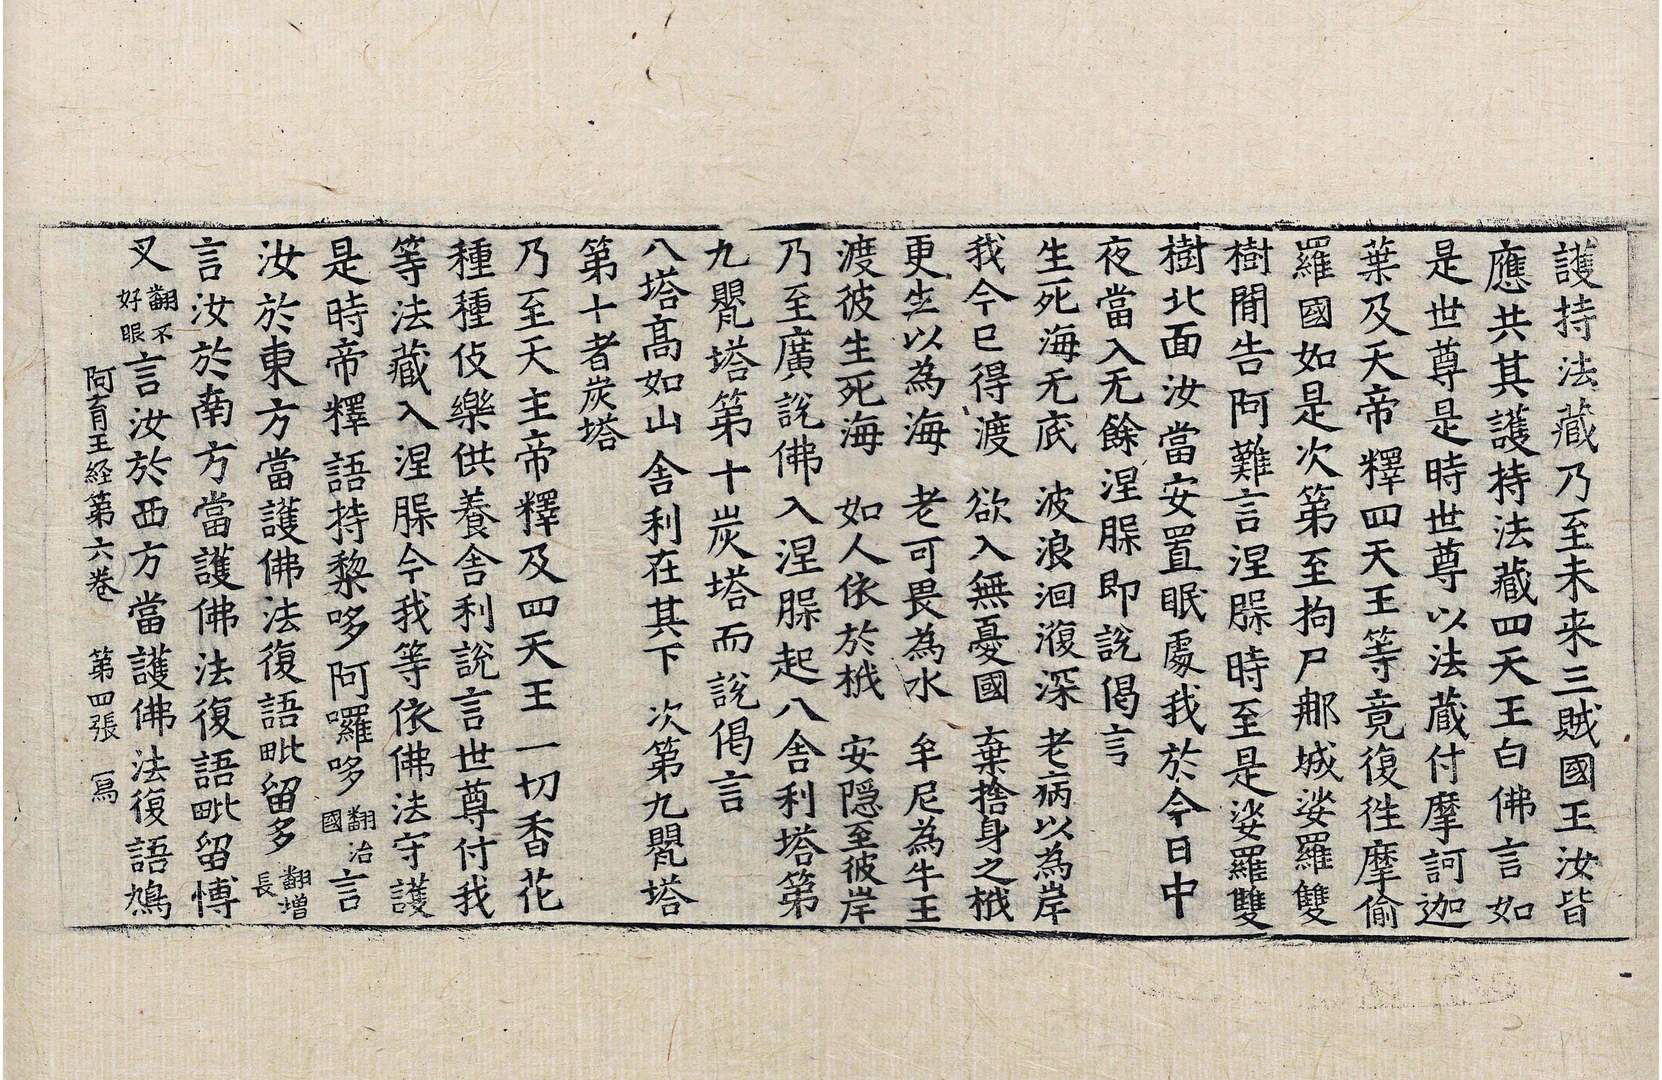 護持法藏乃至未来三賊國王汝皆
應共其護持法藏四天王白佛言如
是世尊是時世尊以法蔵付摩訶迦
葉及天帝釋四天王等竟復徃摩偷
羅國如是次第至拘尸那城娑羅雙
樹間告阿難言涅槃時至是娑羅雙
樹北面汝當安置眠處我於今日中
夜當入无餘涅槃即說偈言
生死海无底　波浪洄澓深　老病以為岸
我今已得渡　欲入無憂國　棄捨身之栰
更生以為海　老可畏為水　牟尼為牛王
渡彼生死海　如人依於栰　安隱至彼岸
乃至廣說佛入涅槃起八舍利塔第
九甖塔第十炭塔而說偈言
八塔高如山　舍利在其下　次第九甖塔
第十者炭塔
乃至天主帝釋及四天王一切香花
種種伎樂供養舍利說言世尊付我
等法藏入涅槃今我等依佛法守護
是時帝釋語持黎哆阿囉哆翻治國言
汝於東方當護佛法復語毗留多翻增長
言汝於南方當護佛法復語毗留愽
叉翻不好眼言汝於西方當護佛法復語鳩
阿育王経第六卷　第四張　寫